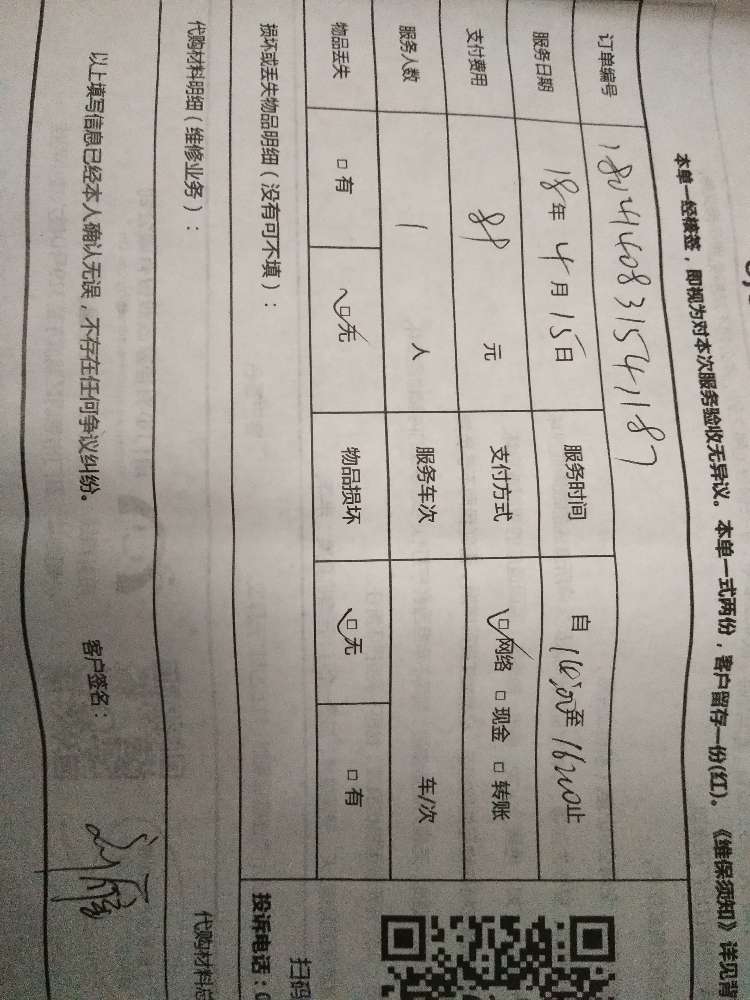 本单一经核签，即视为对本次服务验收无异议。本单一式两份，客户留存一份(红)。《维保须知》详见背
订单编号 180414083154187
服务日期 18年4月15日 服务时间 自 至 止
支付费用 88元 支付方式 □网络 □现金 □转账
服务人数 1 人 服务车次 车/次
物品丢失 □有 □无 物品损坏 □无 □有
损坏或丢失物品明细（没有可不填）：
投诉电话：
扫码
代购材料明细（维修业务）：
代购材料总
以上填写信息已经本人确认无误，不存在任何争议纠纷。 客户签名：